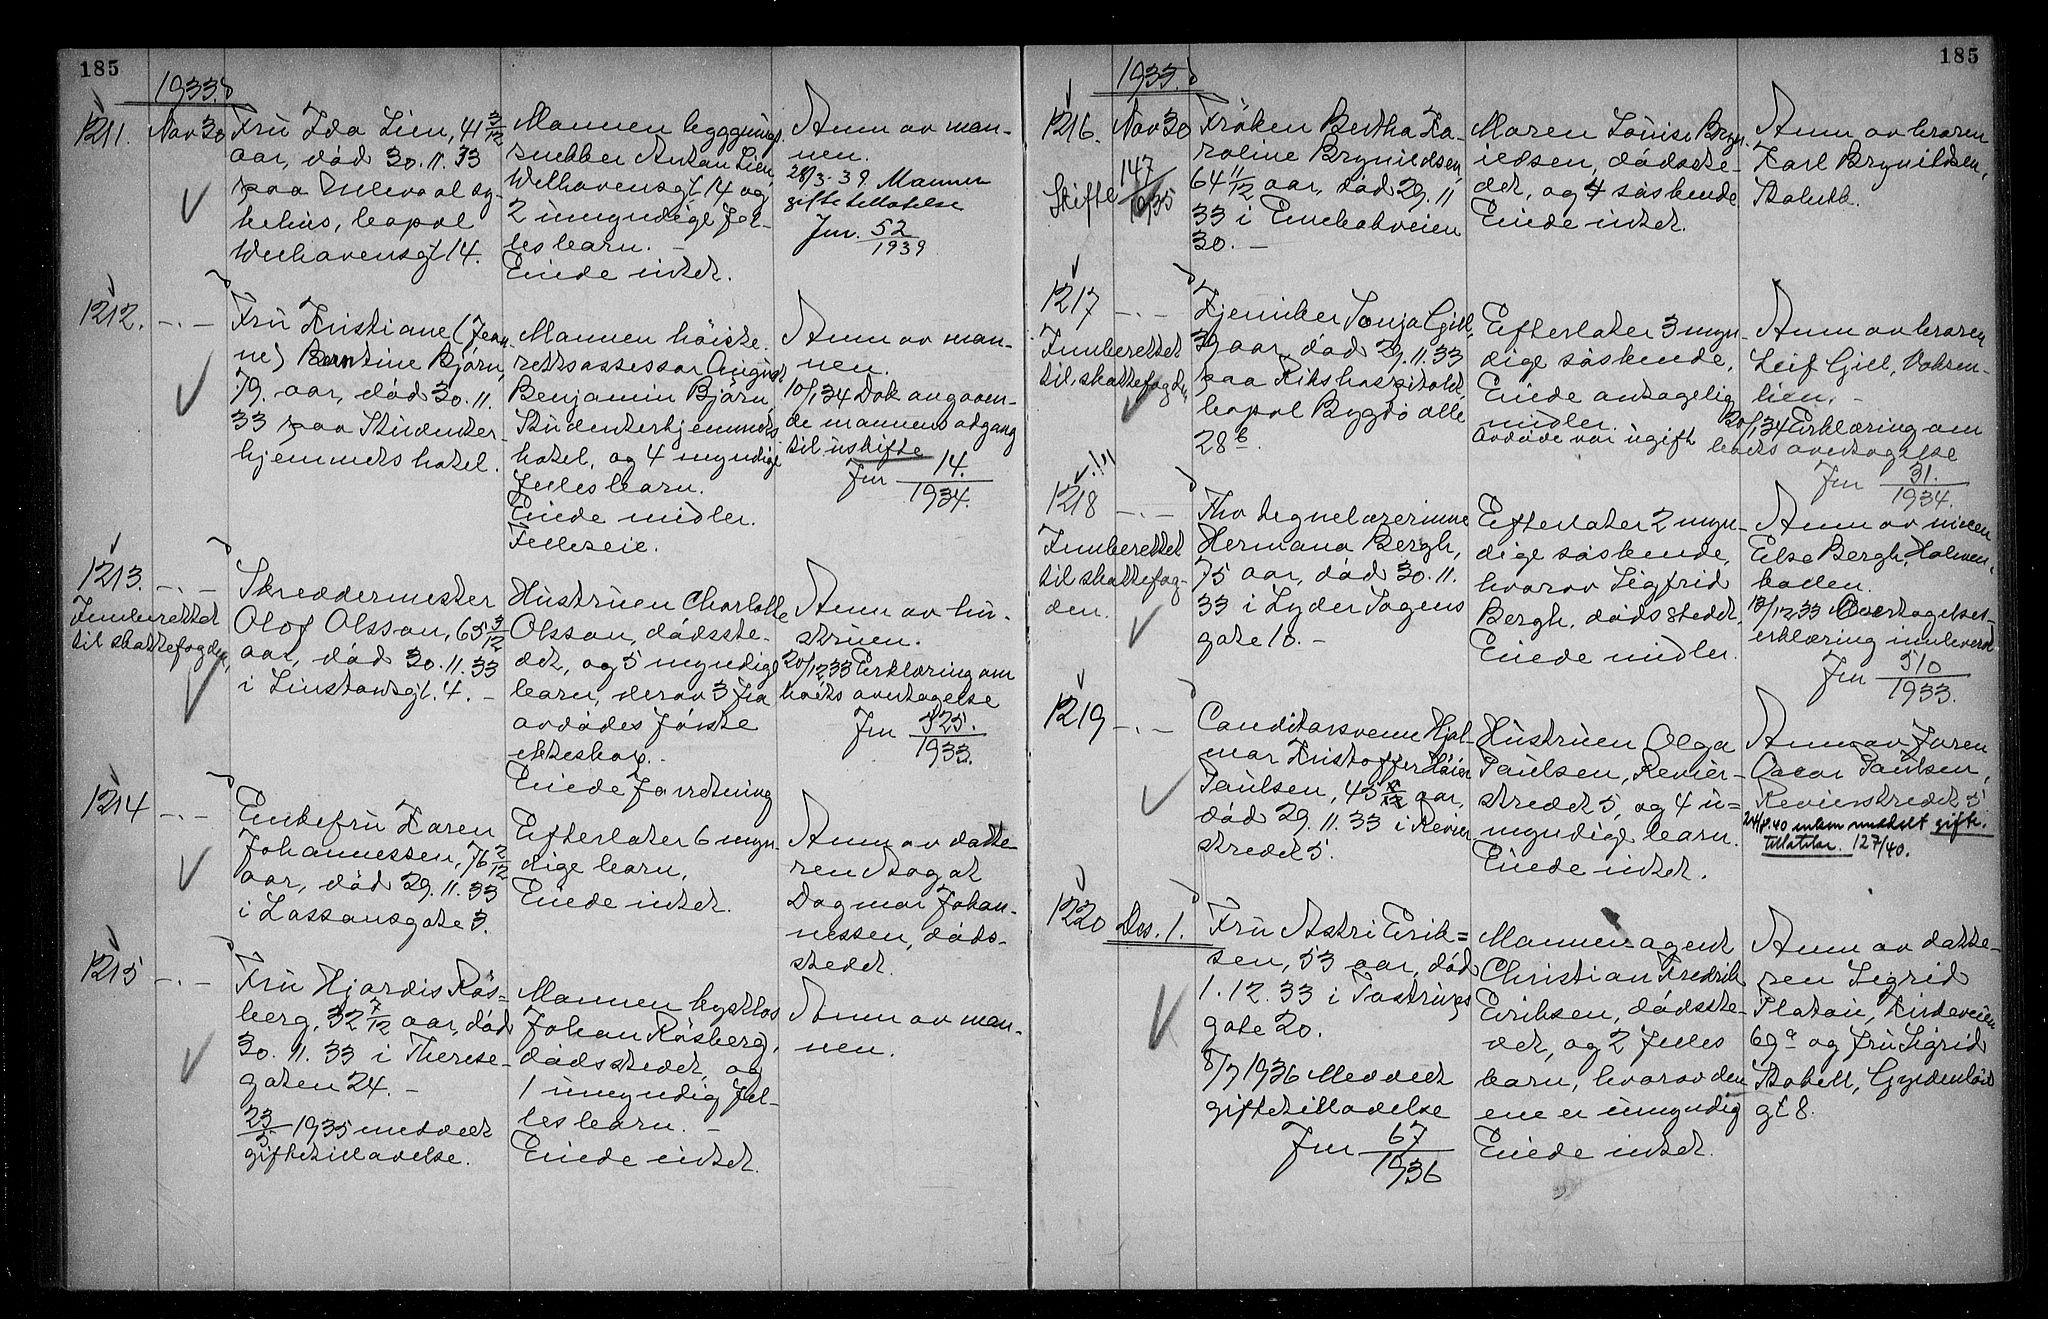 185
1933.
1211. Nov 30
Fru Ida Lien, 41 3/12
aar, død 30.11.33
paa Ulleval sy-
kehus, bopæl
Welhavensgt 14.
Mannen byggnings-
snekker Anton Lien,
Welhavensgt 14 og
2 umyndige fel-
lesbarn. -
Eiede intet.
Anm av man-
nen.
28/3-39 Mannen
giftetillatelse
Jnr. 52/1939
1212. -.-
Fru Kristiane (Jean-
ne) Berntine Bjørn,
79 aar, død 30.11.
33 paa Studenter-
hjemmets hotel.
Mannen høieste-
rettsassessor August
Benjamin Bjørn,
Studenterhjemmets
hotel, og 4 myndige
fellesbarn.
Eiede midler.
Felleseie.
Anm av man-
nen.
10/1 34 Dok angaaen-
de mannens adgang
til uskifte
Jnr 14./1934.
1213. -.-
Innberettet
til skattefogden,
Skreddermester
Olof Olsson, 65 3/12
aar, død 30.11.33
i Linstowsgt. 4. -
Hustruen Charlotte
Olsson, dødsste-
det, og 5 myndige
barn, derav 3 fra
avdødes første
ekteskap. -
Eiede forretning
Anm av hu-
struen.
20/12 33 Erklæring om
boets overtagelse
Jnr 525./1933.
1214 -.-
Enkefru Karen
Johannessen, 76 2/12
aar, død 29.11.33
i Lassonsgate 3.
Efterlater 6 myn-
dige barn,
Eiede intet.
Anm av datte-
ren
Dagmar Johan-
nessen, døds-
stedet.
1215 -.-
Fru Hjørdis Røs-
berg, 32 7/12 aar, død
30.11.33 i Therese-
gaten 24. -
23/5 1935 meddelt
giftetillatelse.
Mannen
Johan Røsberg,
dødsstedet, og
1 umyndig fel-
lesbarn. -
Eiede intet.
Anm av man-
nen.
185
1933.
1216. Nov 30
Skifte 147/1935
Frøken Bertha Ka-
roline Brynildsen,
64 11/12 aar, død 29.11
33 i Enebakveien
30. -
Maren Louise Bryn-
ildsen, dødsste-
det, og 4 søskende
Eiede intet.
Anm av broren
Karl Brynildsen,
Stabekk.
1217 -.-
Innberettet
til skattefogden
Frøken Sonja Gjell,
aar, død 29.11.33
paa Rikshospitalet,
bopæl Bygdø alle
28b.
Efterlater 3 myn-
dige søskende,
Eiede antagelig
midler.
Avdøde var ugift
Anm av broren
Leif Gjell, Voksen-
lien. -
20/1 34 Erklæring om
boets overtagelse
Jnr 31./1934.
1218 -.-
Innberettet
til skattefog-
den.
Fhv tegnelærerinne
Hermana Bergh,
75 aar, død 30.11.
33 i Lyder Sagens
gate 10. -
Efterlater 2 myn-
dige søskende,
hvorav Sigfrid
Bergh, dødsstedet,
Eiede midler.
Anm av niecen
Else Bergh, Holmen-
kollen.
13/12 33 Overtagelses-
erklæring innlevert
Jnr 510/1933.
1219 -.-
Conditorsvenn Hjal-
mar Kristoffer Høier
Paulsen, 45 aar,
død 29.11.33 i Revier-
stredet 5.
Hustruen Olga
Paulsen, Revier-
stredet 5, og 4 u=
myndige barn.
Eiede intet.
Anm av faren
Oscar Paulsen,
Revierstredet 5
enken meddelt gifte-
tillatelse. 127/40.
1220 Des. 1.
Fru Astri Erik=
sen, 53 aar, død
1.12.33 i Tostrups
gate 20.
8/7 1936 Meddelt
giftetillatelse
Jnr 67/1936
Mannen agent
Christian Fredrik
Eriksen, dødsste-
det, og 2 felles
barn, hvorav den
ene er umyndig
Eiede intet.
Anm av datte-
ren Sigrid
Platou, Kirkeveien
69a og fru Sigrid
Stabell, Gyldenløves
gt 8.